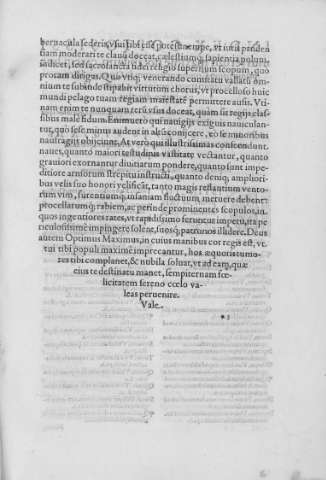 bernacula sederis, vsui tibi esse potest nempe, vt iusta pruden
tiam moderari te clauũ doceat, cælestiumq; sapientia poluni
indicet, sed sacrosancta fidei religio supernum scopum, quo
proram dirigas. Quo vtiq; venerando comitatu vallatũ om
nium te subinde stipabit virtutum chorus, vt procelloso huic
mundi pelago tuam regiam maiestatẽ permittere ausis. Vti-
nam enim te nunquam rerũ vsus doceat, quàm sit regijs clas
sibus malè fidum. Enimuerò qui nauigijs exiguis nauiculan-
tur, quò sese minus audent in altũ conijcere, eò se minoribus
naufragijs obijciunt. At verò qui illustrissimas conscendunt
naueis, quantò maiori testudinis vastitate vectantur, quanto
grauiori exornantur diuitiarum pondere, quanto sunt impe-
ditiore armorum strepitu instructi, quanto deniq; amplioribus
velis suo honori velificãt, tanto magis reflantium vento-
rum vim, furentiumq; insaniam fluctuum, metuere debent
procellarumq; rabiem, ac perinde prominenteis scopulos, in
quos ingentiores rates, vt rapidissimo feruntur impetu, ita pe
riculosissimè impingere solent, suosq; patronos illidere. Deus
autem Optimus Maximus, in cuius manibus cor regis est, vt
tui tibi populi maximè imprecantur, hos æquoris tumo-
res tibi complanet, & nubila soluat, vt ad eam, quæ
eius te destinatu manet, sempiternam fœ-
licitatem sereno cœlo va-
leas peruenire.
Vale.